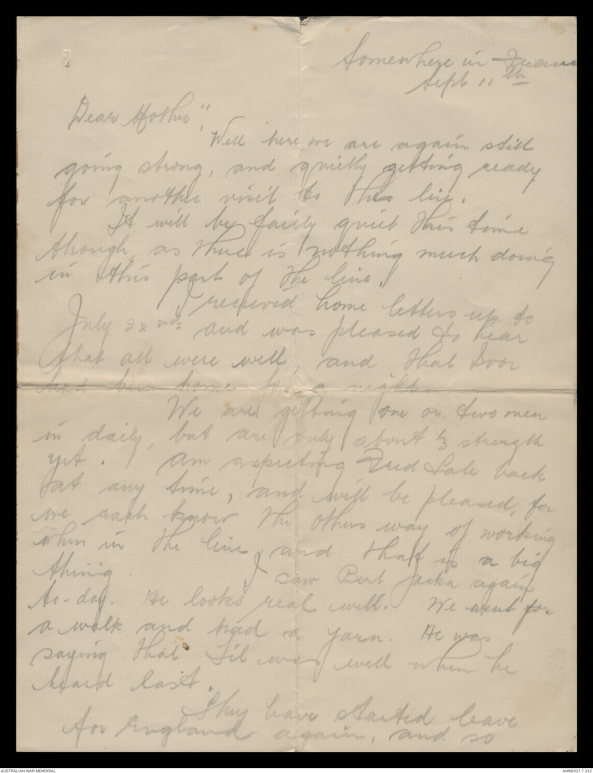 Somewhere in France
Sept 11th
Dear Mother",
Well here we are again still
going strong, and quietly getting ready
for another visit to the line.
It will be fairly quiet this time
though, as there is nothing much doing
in this part of the line.
I received home letters up to
July 22nd and was pleased to hear
that all were well, and that Ivor
had been home for a night.
We are getting one or two men
in daily, but are only about ½ strength
yet. I am expecting Fred back
at any time, and will be pleased, for
we each know the others way of working
when in the line, and that is a big
thing. I saw Bert Jacka again
to-day. He looks real well. We went for
a walk and had a yarn. He was
saying that Sil was well when he
heard last.
They have started leave
for England again, and so
AUSTRALIAN WAR MEMORIAL
AWM2021.7.242